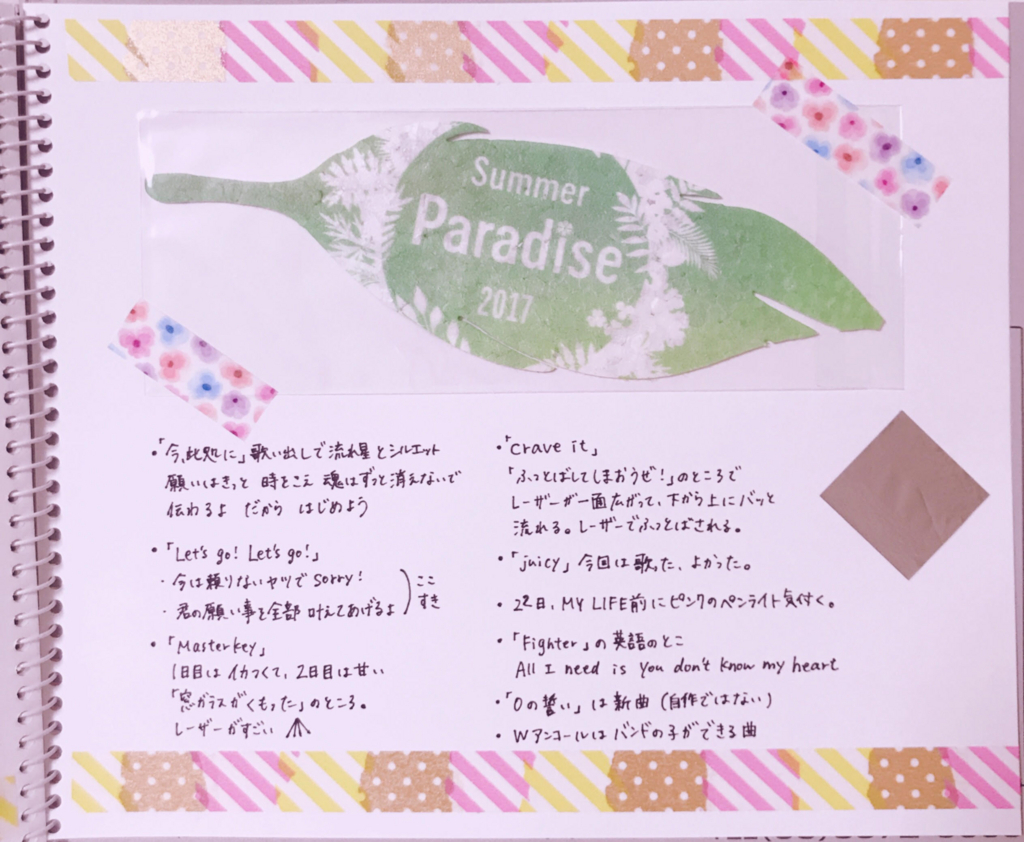 Summer
Paradise
2017
・「今、此処に」歌い出しで流れ星とシルエット
願いはきっと 時をこえ 魂はずっと消えないで
伝わるよ だから はじめよう
・「Let's go! Let's go!」
・今は頼りないヤツで sorry!
・君の願い事を全部 叶えてあげるよ
ここ
すき
・「Masterkey」
1日目はイカつくて、2日目は甘い
「窓ガラスがくもった」のところ。
レーザーがすごい
・「crave it」
「ふっとばしてしまおうぜ!」のところで
レーザーが一面広がって、下から上にバッと
流れる。レーザーでふっとばされる。
・「juicy」今回は歌った、よかった。
・22日、MY LIFE前にピンクのペンライト気付く。
・「Fighter」の英語のとこ
All I need is you don't know my heart
・「0の誓い」は新曲(自作ではない)
・Wアンコールはバンドの子ができる曲